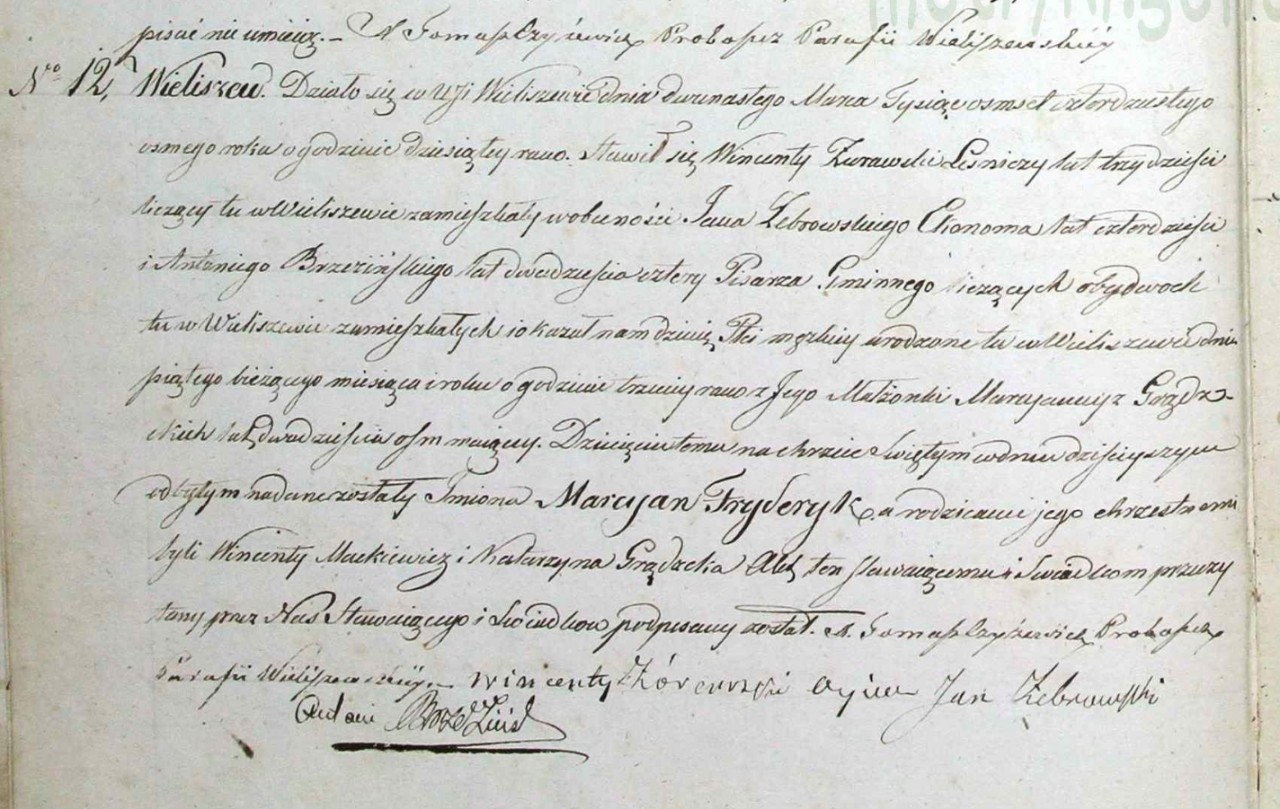 pisać nie umieją. – X Tomasz Czyżewicz Proboszcz Parafii Wieliszewskiéy
No 12, Wieliszew. Działo się w Wsi Wieliszewie dnia dwunastego Marca Tysiąc osmset czterdziestego
osmego roku o godzinie dziesiątey rano. Stawił się Wincenty Zurawski Leśniczy lat trzydzieści
liczący tu w Wieliszewie zamieszkały w obecności Jana Zebrowskiego Ekonoma lat czterdzieści
i Antoniego Brzezińskiego lat dwadzieścia cztery Pisarza Gminnego liczących obydwoch
tu w Wieliszewie zamieszkałych i okazał nam dziecię Płci męzkiey urodzone tu w Wieliszewie dnia
piątego bieżącego miesiąca i roku o godzinie trzeciey rano z Jego Małżonki Maryanny z Grądz-
ckich lat dwadzieścia osm maiącey. Dziecięciu temu na chrzcie Świętym w dniu dzisieyszym
odbytym nadane zostały Imiona Marcyan Fryderyk a rodzicami jego chrzestnemi
byli Wincenty Mackiewicz i Katarzyna Grądzcka Akt ten stawaiącemu i Swiadkom przeczy
tany przez Nas Stawaiącego i Swiadkow podpisany został. X. Tomasz Czyżewicz Proboszcz
Parafii Wieliszewskiéy. – Wincenty Zórawski oyciec Jan Zebrowski
Antoni Brzeziński